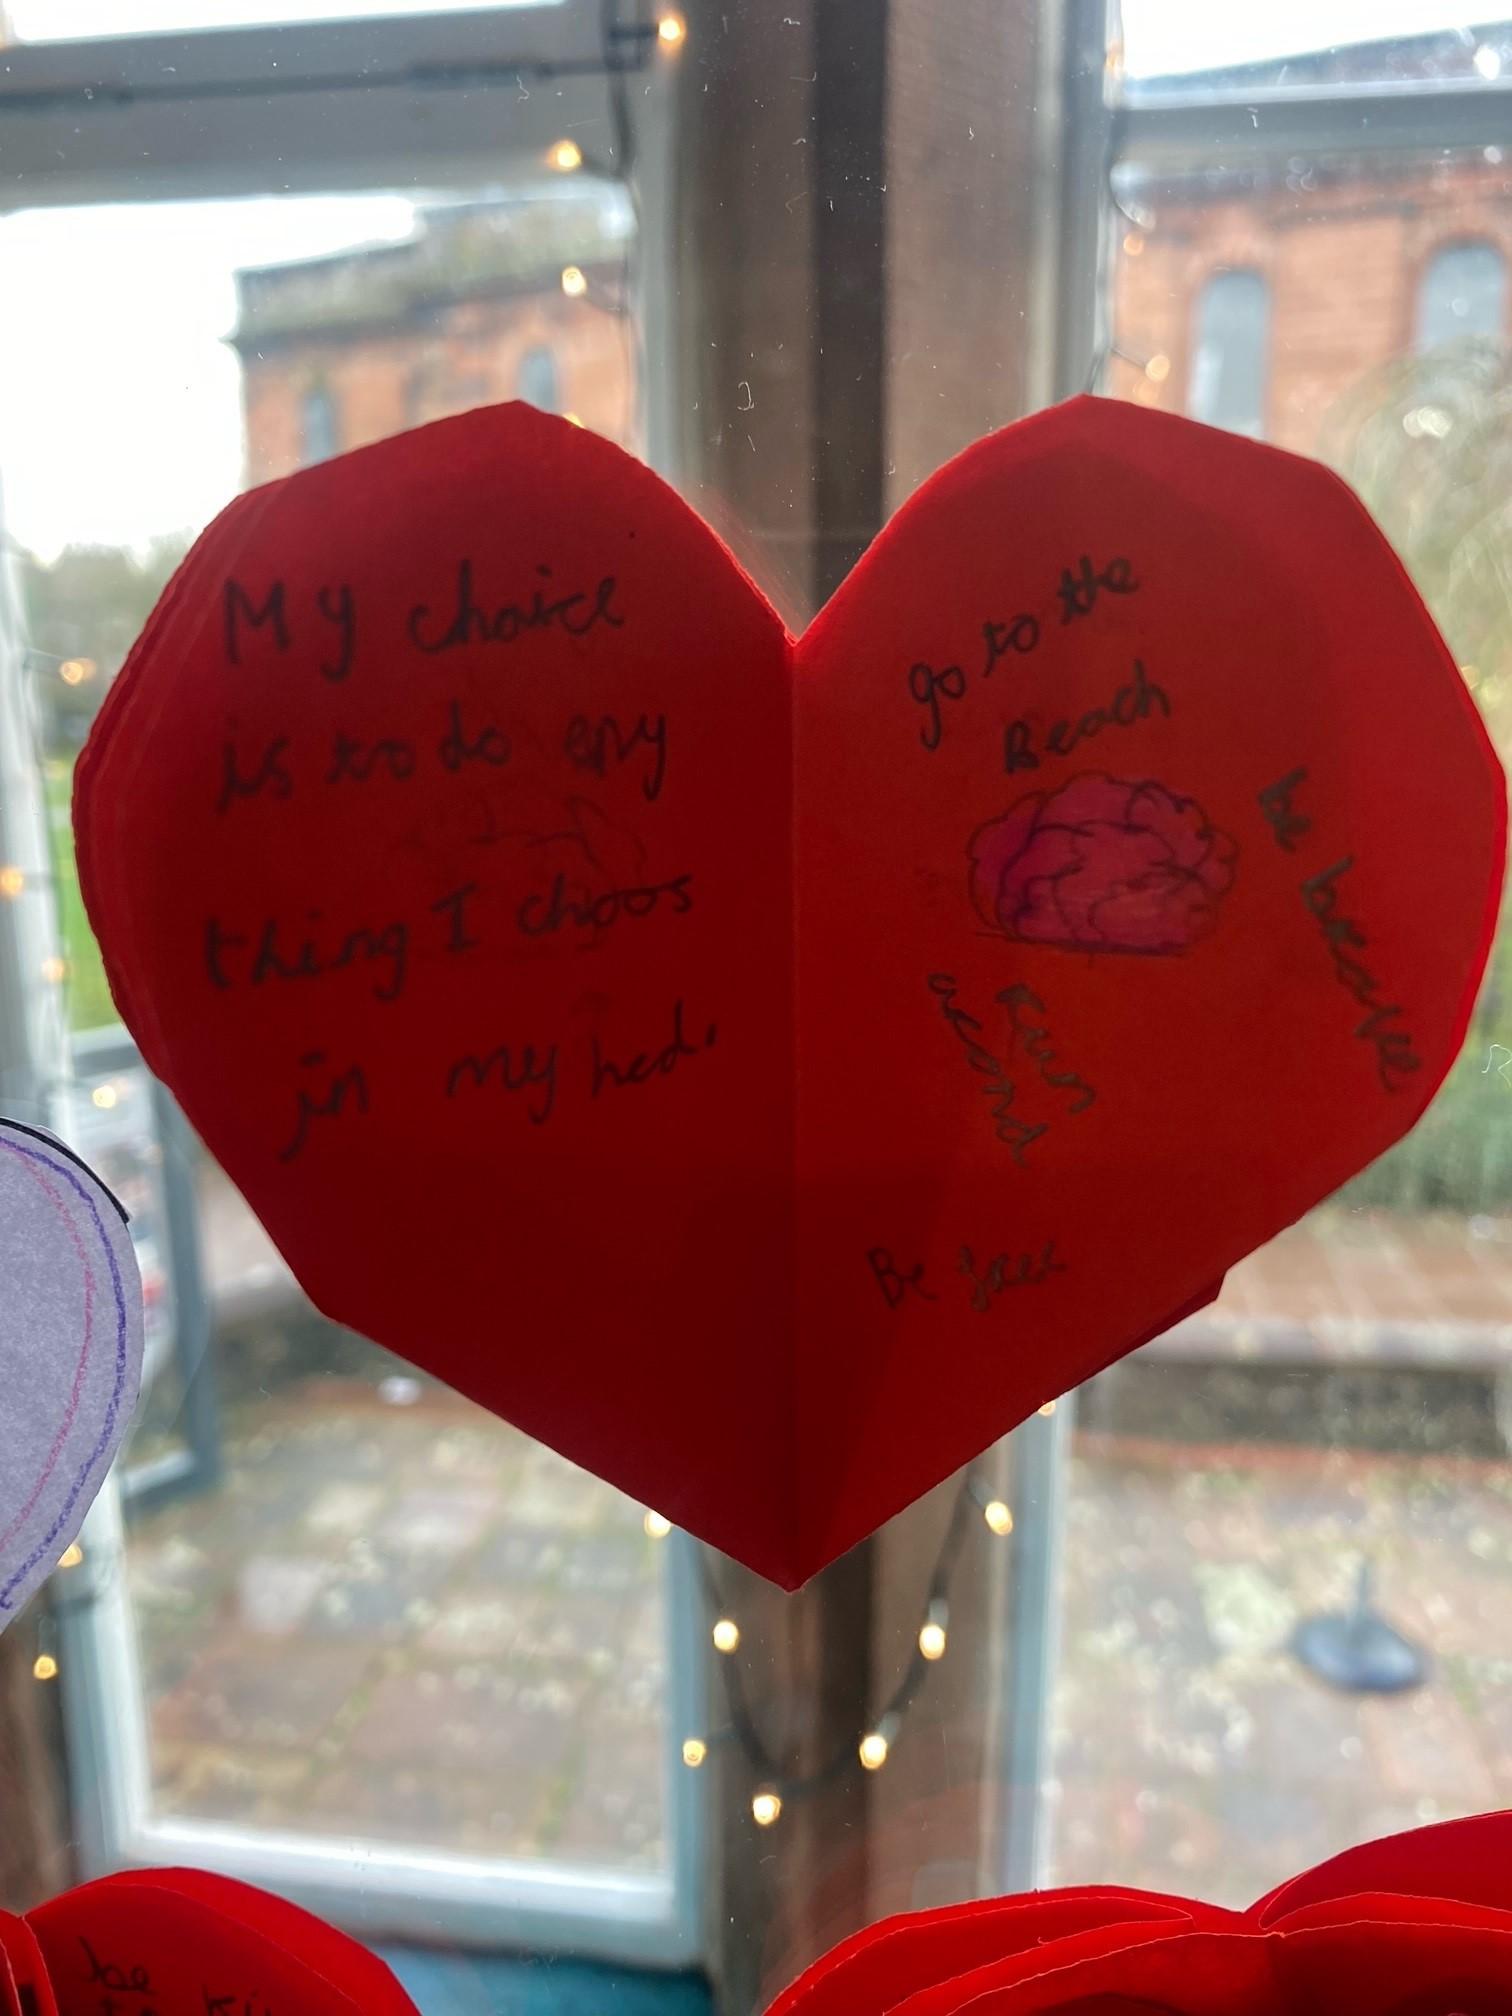 My choice
is to do eny
thing I choos
in my hed.
go to the
Beach
be brave
Run
arond
Be free
be